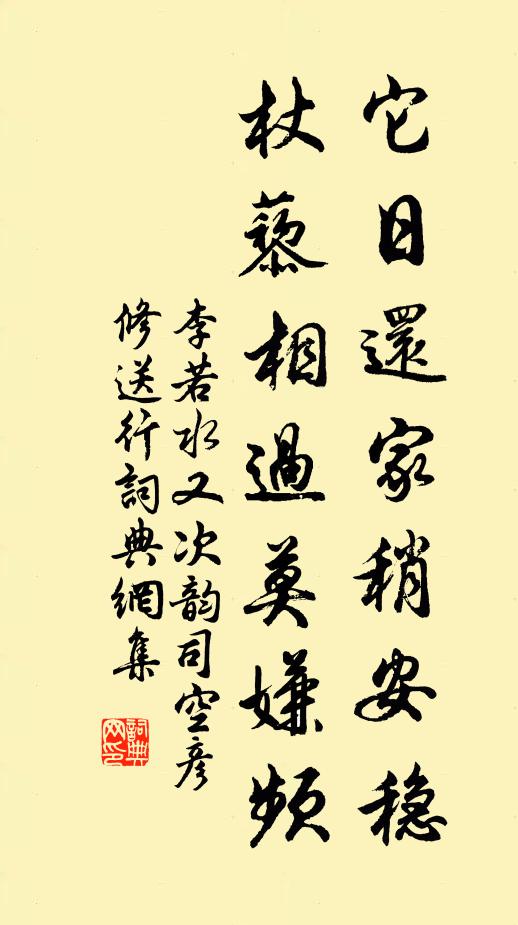 它日還家稍安穩
杖藜相過莫嫌頻
李若水又次韵司空彥
修送行詞典網集
詞典
网印